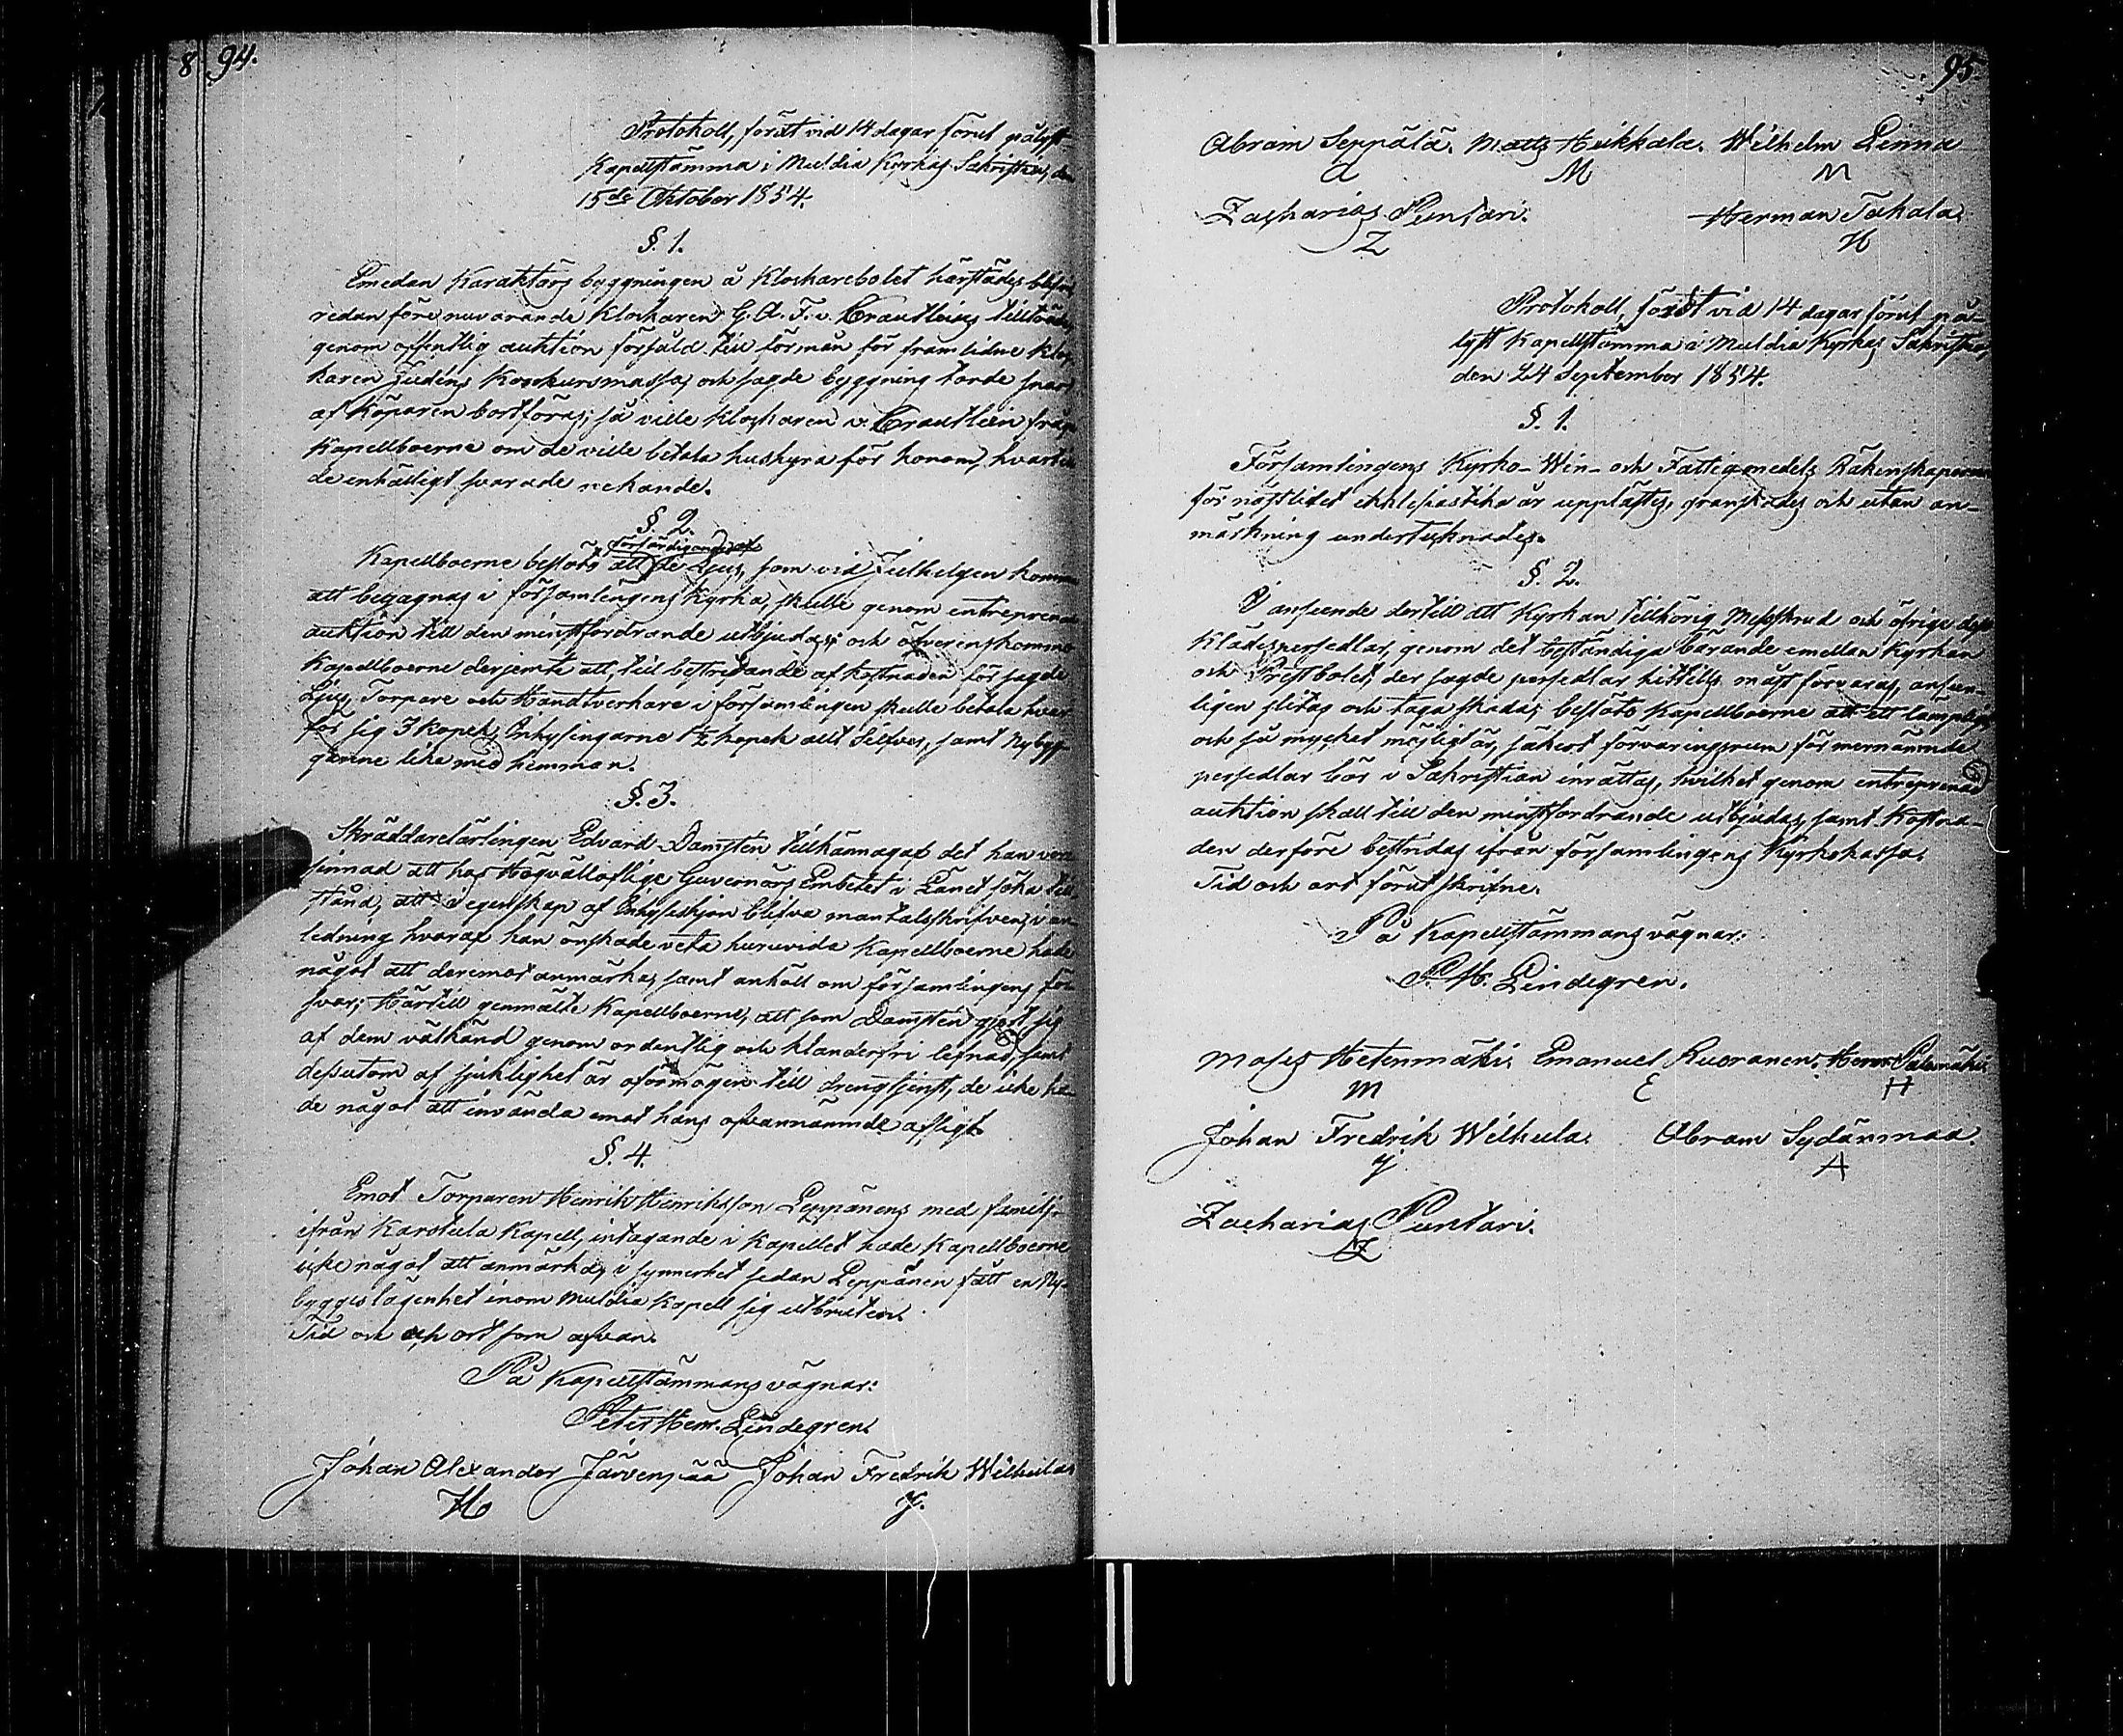 8 94.
Protokoll, fördt vid 14 dagar förut pålyst
Kapellstämma i Muldia Kyrkas Sakristia, den
15de Oktober 1854.
§. 1.
Emedan Karaktärs byggningen å Klockarebolet härstädes blifvit
redan före nuvarande Klockaren G. A. F. v. Crautleins tillträde,
genom offentlig auktion försåld till förmån för framlidne Kloc-
karen Judéns Konkursmassa, och sagde byggning torde snart
af Köparen bortföras; så ville Klockaren v. Crautlein fråga
Kapellboerne om de ville betala hushyra för honom, hvartill
de enhälligt svarade nekande.
§. 2.
förfärdigande af
Kapellboerne beslöto att de Ljus, som vid Julhelgen komma
att begagnas i församlingens Kyrka, skulle genom entreprenad
auktion till den minstfordrande utbjudas; och öfverenskommo
Kapellboerne derjemte att, till bestridande af kostnaden för sagde
Ljus, Torpare och Handtverkare i församlingen skulle betala hvar
för sig 3 kopek, Inhysingarne 1½ kopek allt Silfver, samt Nybyg-
garne lika med hemman.
§. 3.
Skräddarelärlingen Edvard Damstén tillkännagaf det han vore
sinnad att hos Högvällofliga Guvernörs Embetet i Länet söka till-
stånd, att i egenskap af Inhyseshjon blifva mantalsskrifven, i an-
ledning hvaraf han önskade veta huruvida Kapellboerne hade
något att deremot anmärka, samt anhöll om församlingens för-
svar; Härtill genmälte Kapellboerne, att som Damstén gjort sig
af dem välkänd genom ordentlig och klanderfri lefnad, samt
dessutom af sjuklighet är oförmögen till drengtjenst, de icke ha-
de något att invända emot hans ofvannämnde afsigt.
§. 4.
Emot Torparen Henrik Henriksson Leppänens med familj
ifrån Karstula Kapell, intagande i Kapellet hade Kapellboerne
icke något att anmärka, i synnerhet sedan Leppänen fått en Ny-
byggeslägenhet inom Muldia Kapell sig utbruten.
Tid och och ort som ofvan.
På Kapellstämmans vägnar:
Peter Henr. Lindegren.
Johan Alexander Järvenpää Johan Fredrik Wilkula
J.
95
Abram Seppälä. Matts Heikkala. Wilhelm Linna
A M M
Zacharias Puntari. Herman Takala.
Z H
Protokoll, fördt vid 14 dagar förut på-
lyst Kapellstämma i Muldia Kyrkas Sakristia,
den 24 September 1854.
§. 1.
Församlingens Kyrko- Win- och Fattigmedels Räkenskaperna
för nästlidet ekklesiastika år upplästes, granskades och utan an-
märkning undertecknades.
§. 2.
I anseende dertill att Kyrkan tillhörig Messskrud och öfriga dess
Klädespersedlar, genom det beständiga bärande emellan Kyrkan
och Prestbolet, der sagde persedlar hittills måst förvaras, ansen-
ligen slitas och taga skada; beslöto Kapellboerne att ett lämpligt
och så mycket möjligt är, säkert förvaringsrum för mernämnde
persedlar bör i Sakristian inrättas, hvilket genom entreprenad
auktion skall till den minstfordrande utbjudas, samt Kostna-
den derföre bestridas ifrån församlingens Kyrkokassa.
Tid och ort förut skrifne.
På Kapellstämmans vägnar:
P. H. Lindegren.
Moses Hetenmäki. Emanuel Kuoranen. Henr. Palomäki.
M E H
Johan Fredrik Wilkula. Abram Sydänmaa.
J A
Zacharias Puntari.
Z